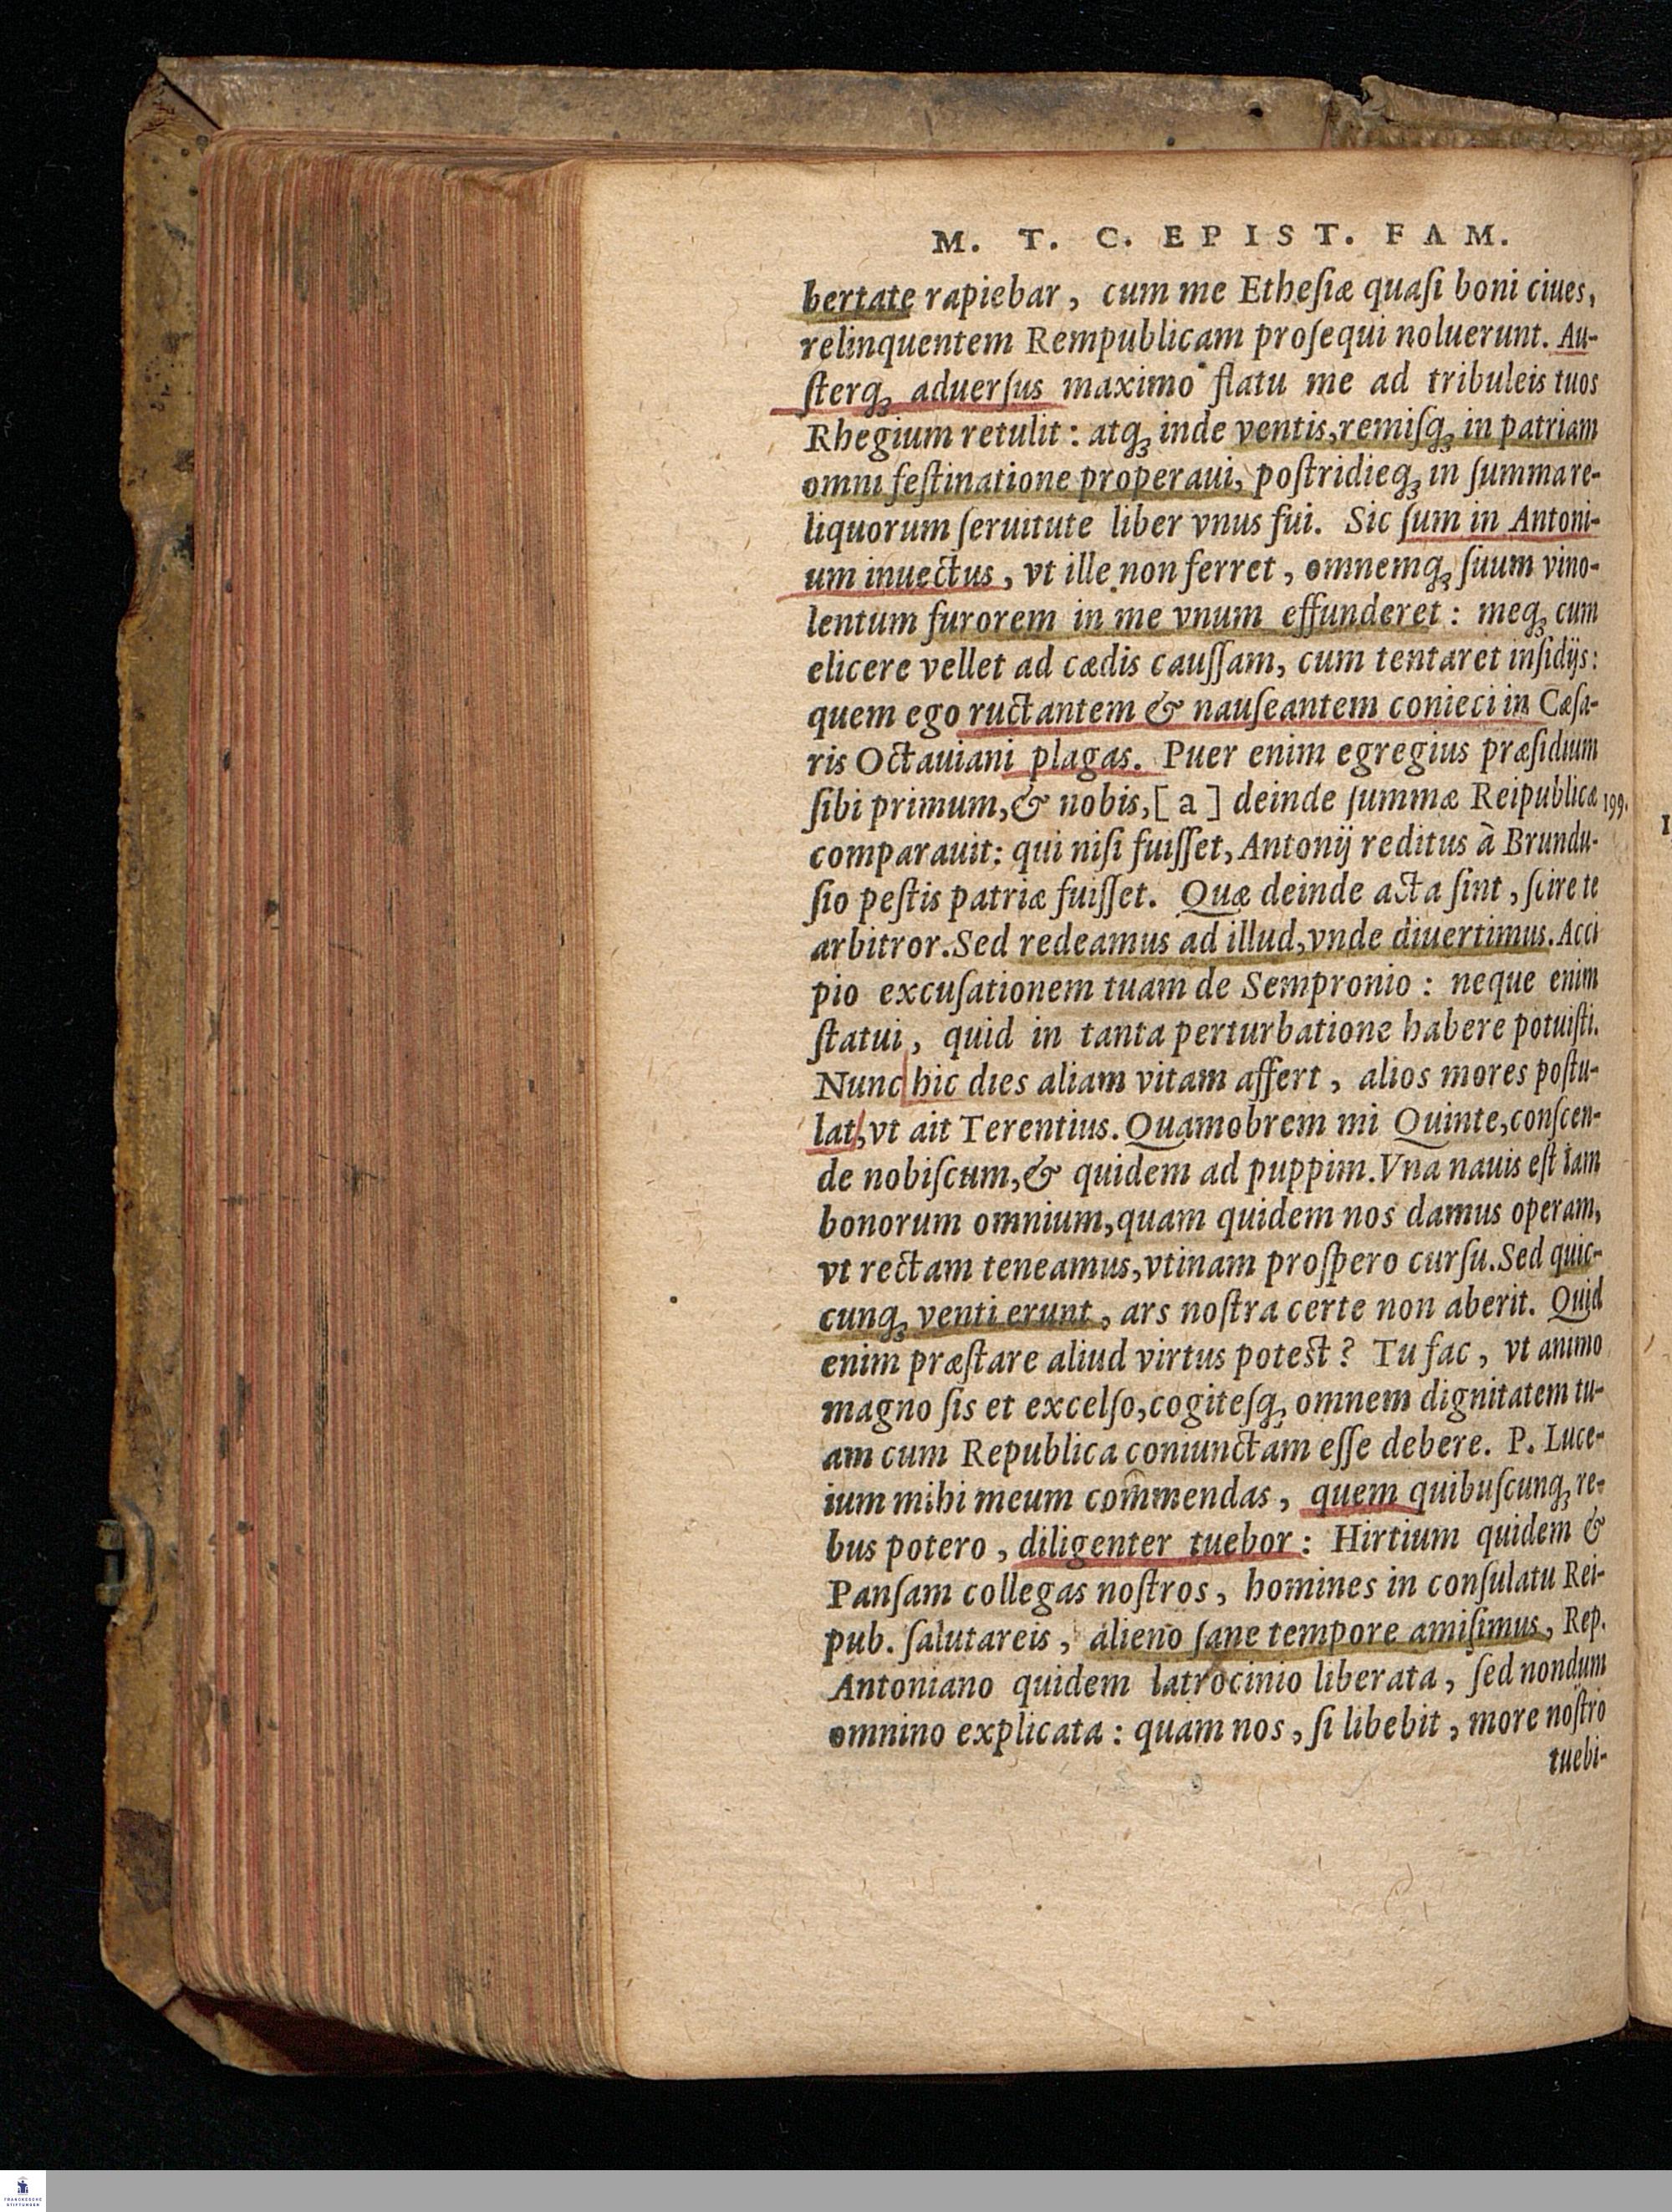 M. T. C. EPIST. FAM.
bertate rapiebar, cum me Etheſiæ quaſi boni ciues,
relinquentem Rempublicam proſequi noluerunt. Au-
ſterq́ꝫ aduerſus maximo flatu me ad tribuleis tuos
Rhegium retulit: atqꝫ inde ventis, remiſqꝫ in patriam
omni feſtinatione properaui, poſtridieqꝫ in ſumma re-
liquorum ſeruitute liber vnus fui. Sic ſum in Antoni-
um inuectus, vt ille non ferret, omnemqꝫ ſuum vino-
lentum furorem in me vnum effunderet: meqꝫ cum
elicere vellet ad cædis cauſſam, cum tentaret inſidijs:
quem ego ructantem & nauſeantem conieci in Cæſa-
ris Octauiani plagas. Puer enim egregius præſidium
ſibi primum, & nobis, [a] deinde ſummæ Reipublicæ 199.
comparauit: qui niſi fuiſſet, Antonij reditus à Brundu-
ſio peſtis patriæ fuiſſet. Quæ deinde acta ſint, ſcire te
arbitror. Sed redeamus ad illud, vnde diuertimus. Acci
pio excuſationem tuam de Sempronio: neque enim
ſtatui, quid in tanta perturbatione habere potuiſti.
Nunc hic dies aliam vitam affert, alios mores poſtu-
lat, vt ait Terentius. Quamobrem mi Quinte, conſcen-
de nobiſcum, & quidem ad puppim. Vna nauis eſt iam
bonorum omnium, quam quidem nos damus operam,
vt rectam teneamus, vtinam proſpero curſu. Sed quic-
cunqꝫ venti erunt, ars noſtra certe non aberit. Quid
enim præſtare aliud virtus potest? Tu fac, vt animo
magno ſis et excelſo, cogiteſqꝫ omnem dignitatem tu-
am cum Republica coniunctam eſſe debere. P. Luce-
ium mihi meum commendas, quem quibuſcunqꝫ re-
bus potero, diligenter tuebor: Hirtium quidem &
Panſam collegas noſtros, homines in conſulatu Rei-
pub. ſalutareis, alieno ſane tempore amiſimus, Rep.
Antoniano quidem latrocinio liberata, ſed nondum
omnino explicata: quam nos, ſi libebit, more noſtro
tuebi-
FRANCKESCHE
STIFTUNGEN